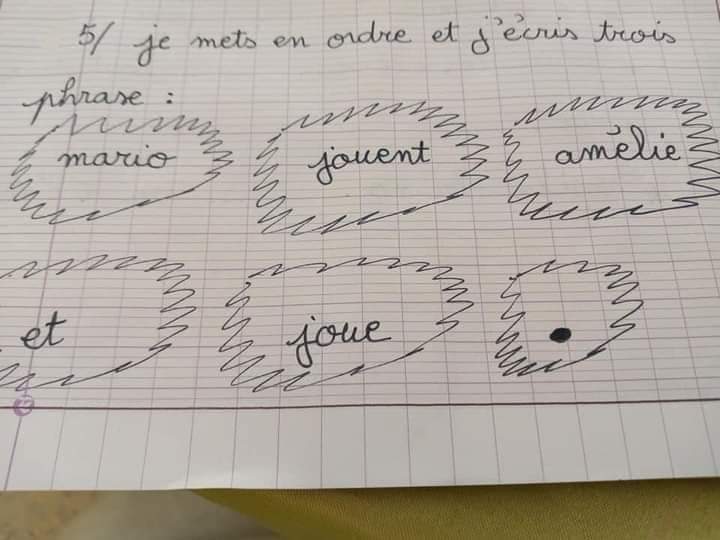 5/ je mets en ordre et j'écris trois
phrase :
mario jouent amélie
et joue .